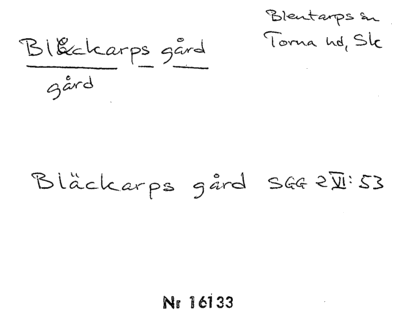 Blentarps sn
Bläckarps gård
Torna hd, Sk
gård
Bläckarps gård SGG 2 VI: 53
Nr 16133